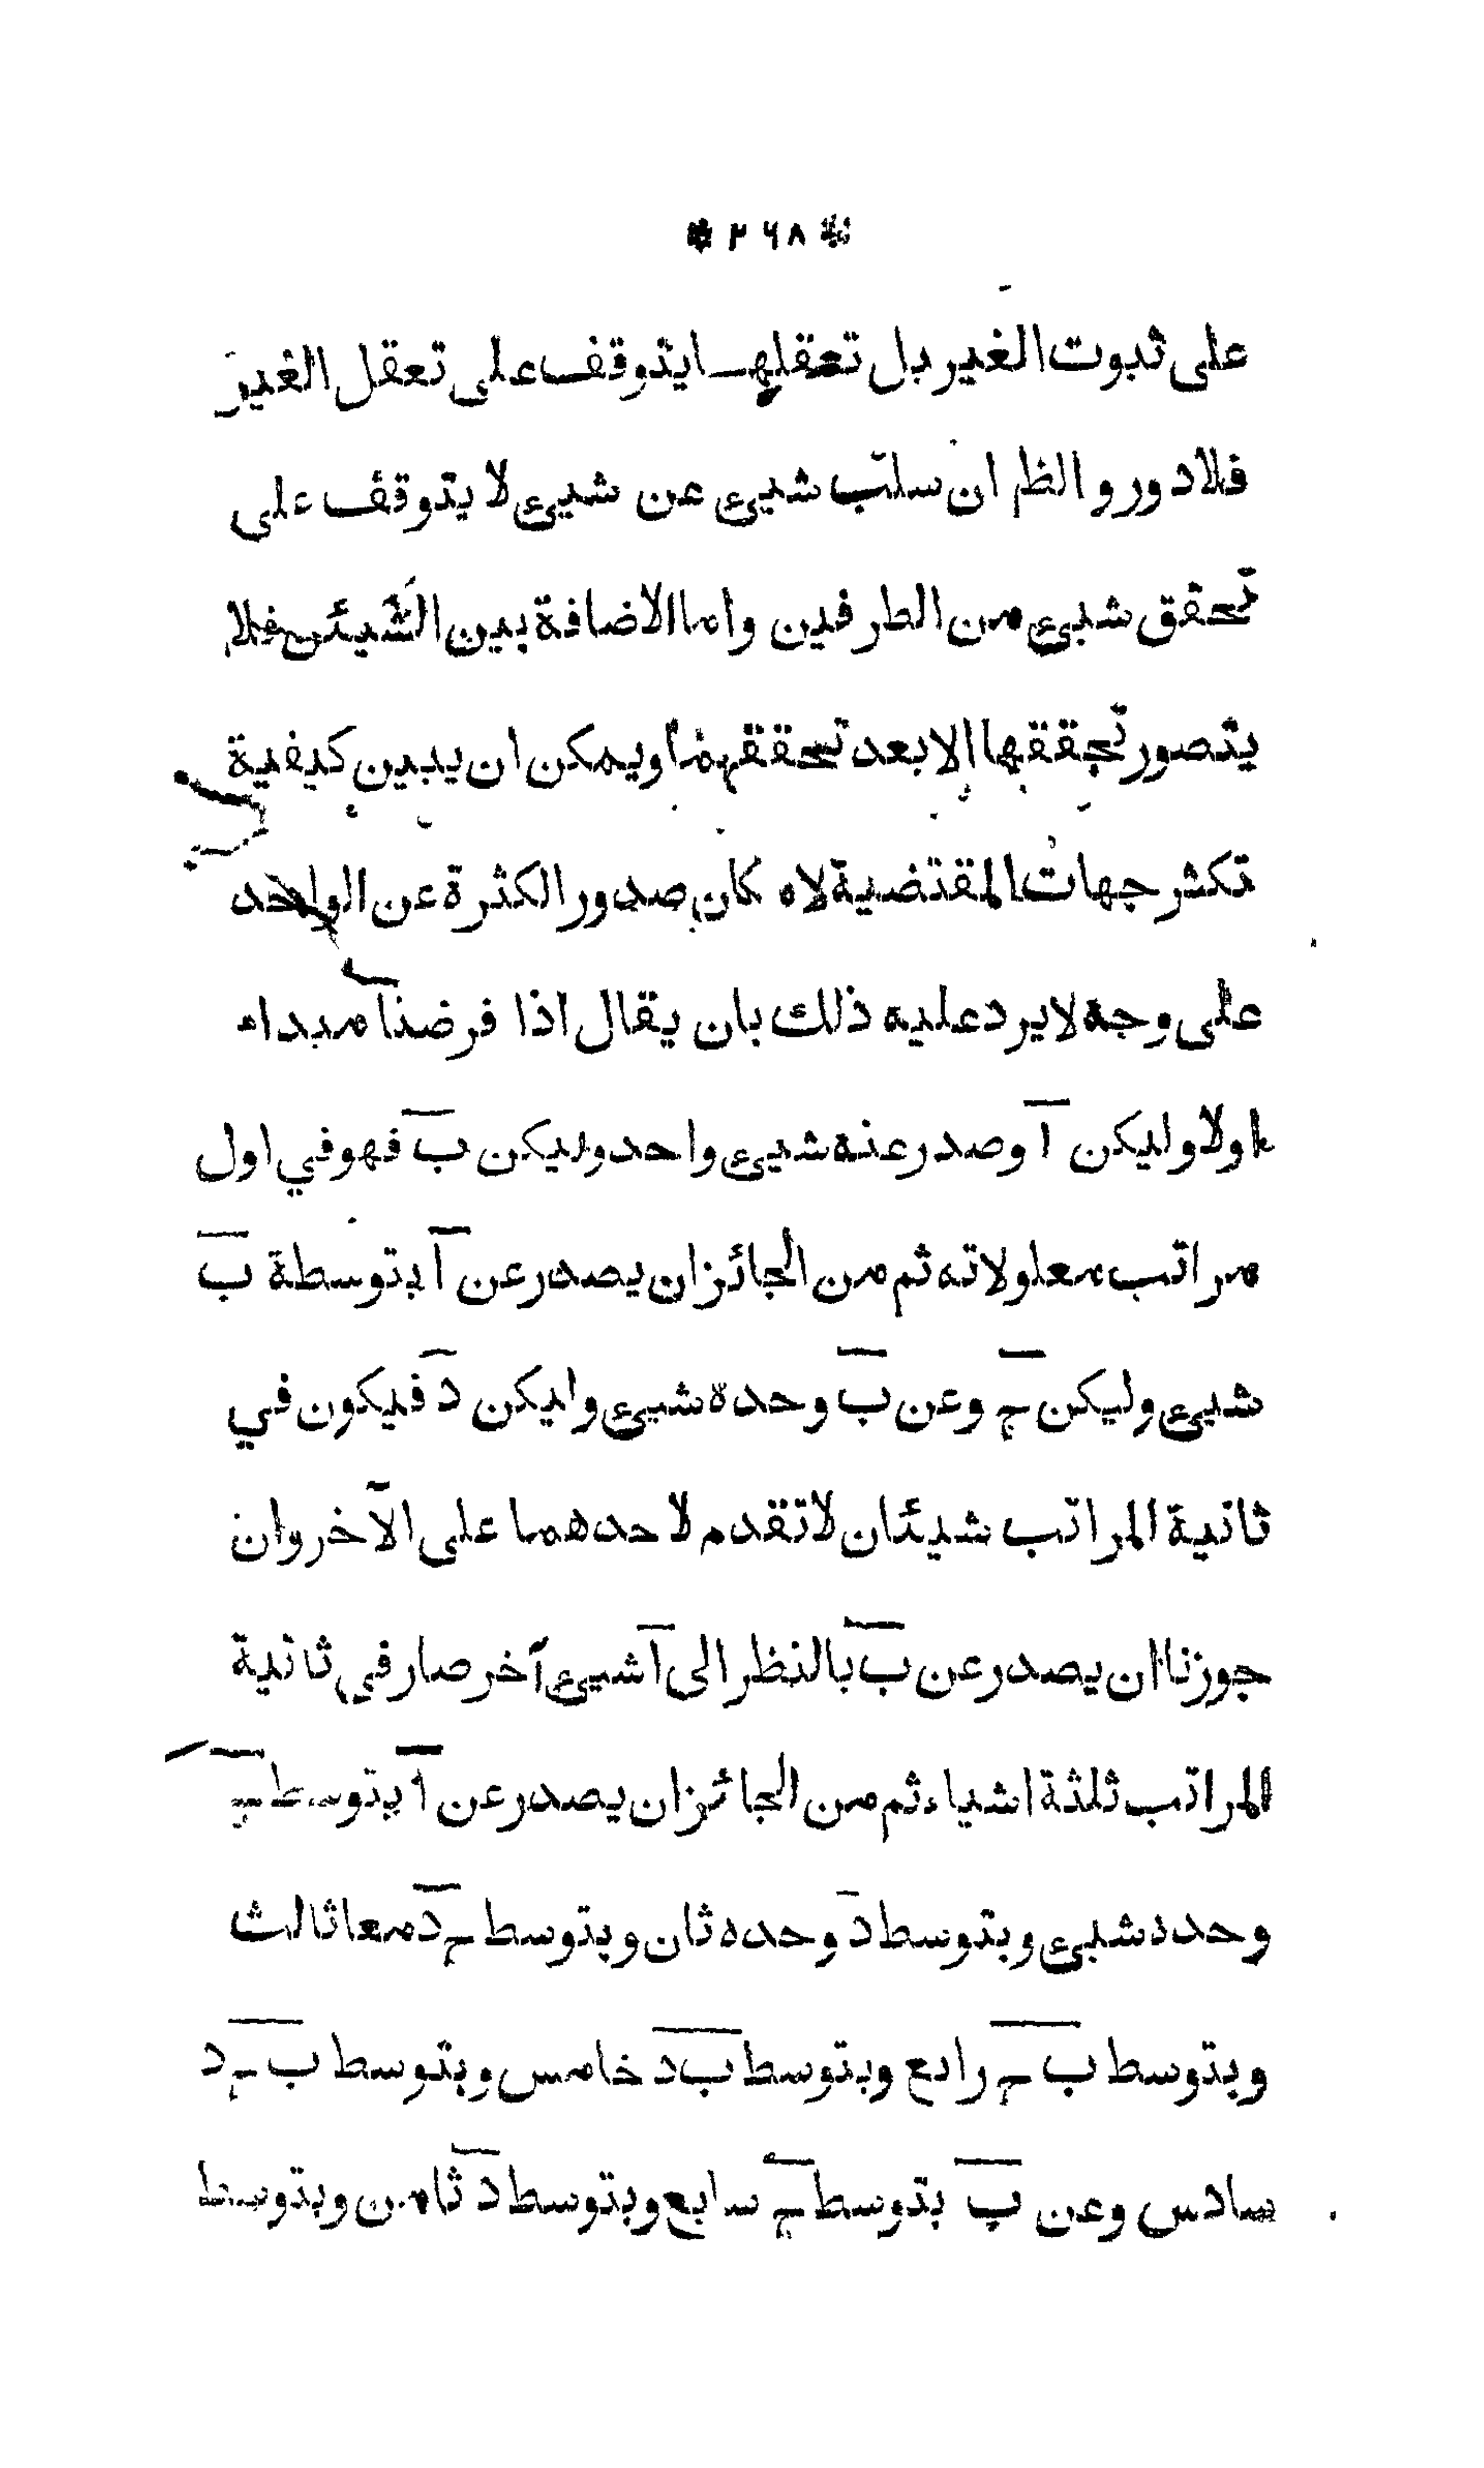 * ٢٦٨ *
على ثبوت الغير بل تعقلها يتوقف على تعقل الغير
فلا دور و الظ ان سلب شيئ عن شيئ لا يتوقف على
تحقق شيئ من الطرفين واما الاضافة بين الشيئين فلا
يتصور تحققها الا بعد تحققهما ويمكن ان يبين كيفية
تكثر جهات المقتضية لامكان صدور الكثرة عن الواحد
على وجه لا يرد عليه ذلك بان يقال اذا فرضنا مبداء
اولا وليكن آ وصدر عنه شيئ واحد وليكن ب فهو في اول
مراتب معلولاته ثم من الجائز ان يصدر عن آ بتوسطة ب
شيئ وليكن ج وعن ب وحدة شيئ وليكن د فيكون في
ثانية المراتب شيئان لا تقدم لاحدهما على الآخر وان
جوزنا ان يصدر عن ب بالنظر الى آ شيئ آخر صار في ثانية
المراتب ثلثة اشياء ثم من الجائز ان يصدر عن آ بتوسط ج
وحده شيئ و بتوسط د وحده ثان و بتوسط ج د معا ثالث
وبتوسط ب ج رابع وبتوسط ب د خامس وبتوسط ب ج د
سادس وعن ب بتوسط ج سابع وبتوسط د ثامن وبتوسط